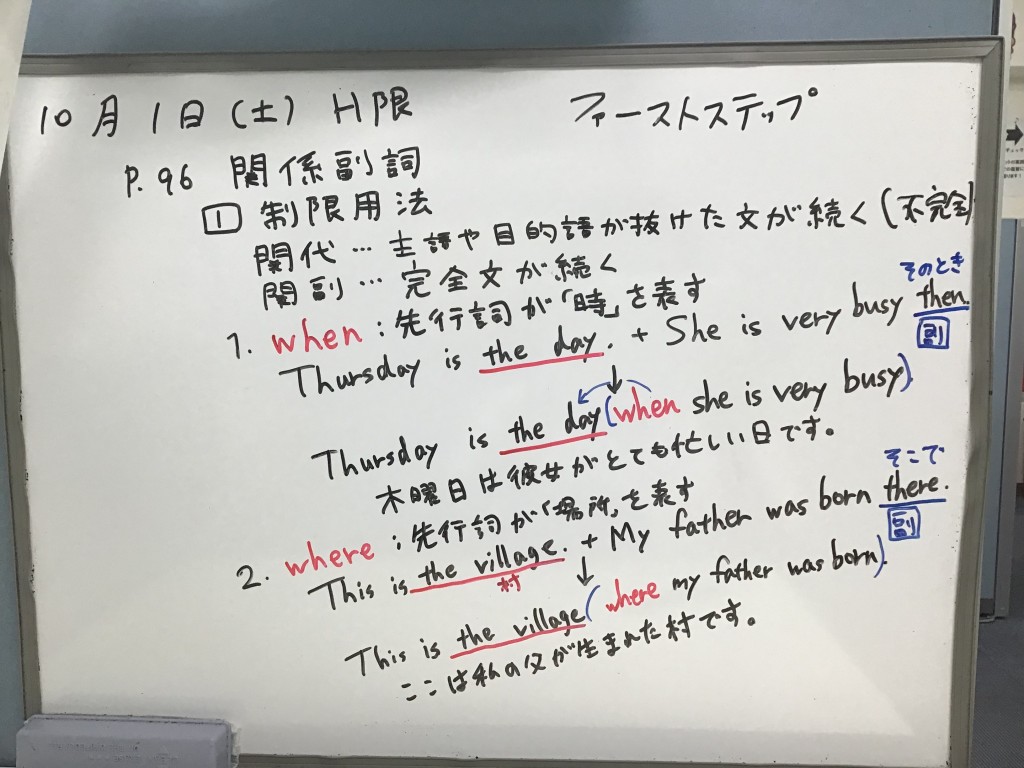 10月1日(土) H限 ファーストステップ
P.96 関係副詞
1 制限用法
関代…主語や目的語が抜けた文が続く(不完全)
関副…完全文が続く
1. when:先行詞が「時」を表す
そのとき
Thursday is the day. + She is very busy then.
副
↓
Thursday is the day(when she is very busy)
木曜日は彼女がとても忙しい日です。
2. where:先行詞が「場所」を表す
そこで
This is the village. + My father was born there.
村 副
↓
This is the village(where my father was born).
ここは私の父が生まれた村です。